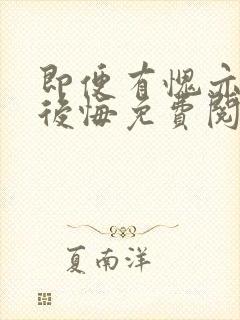 即便有愧亦
後悔免費閱
夏南洋